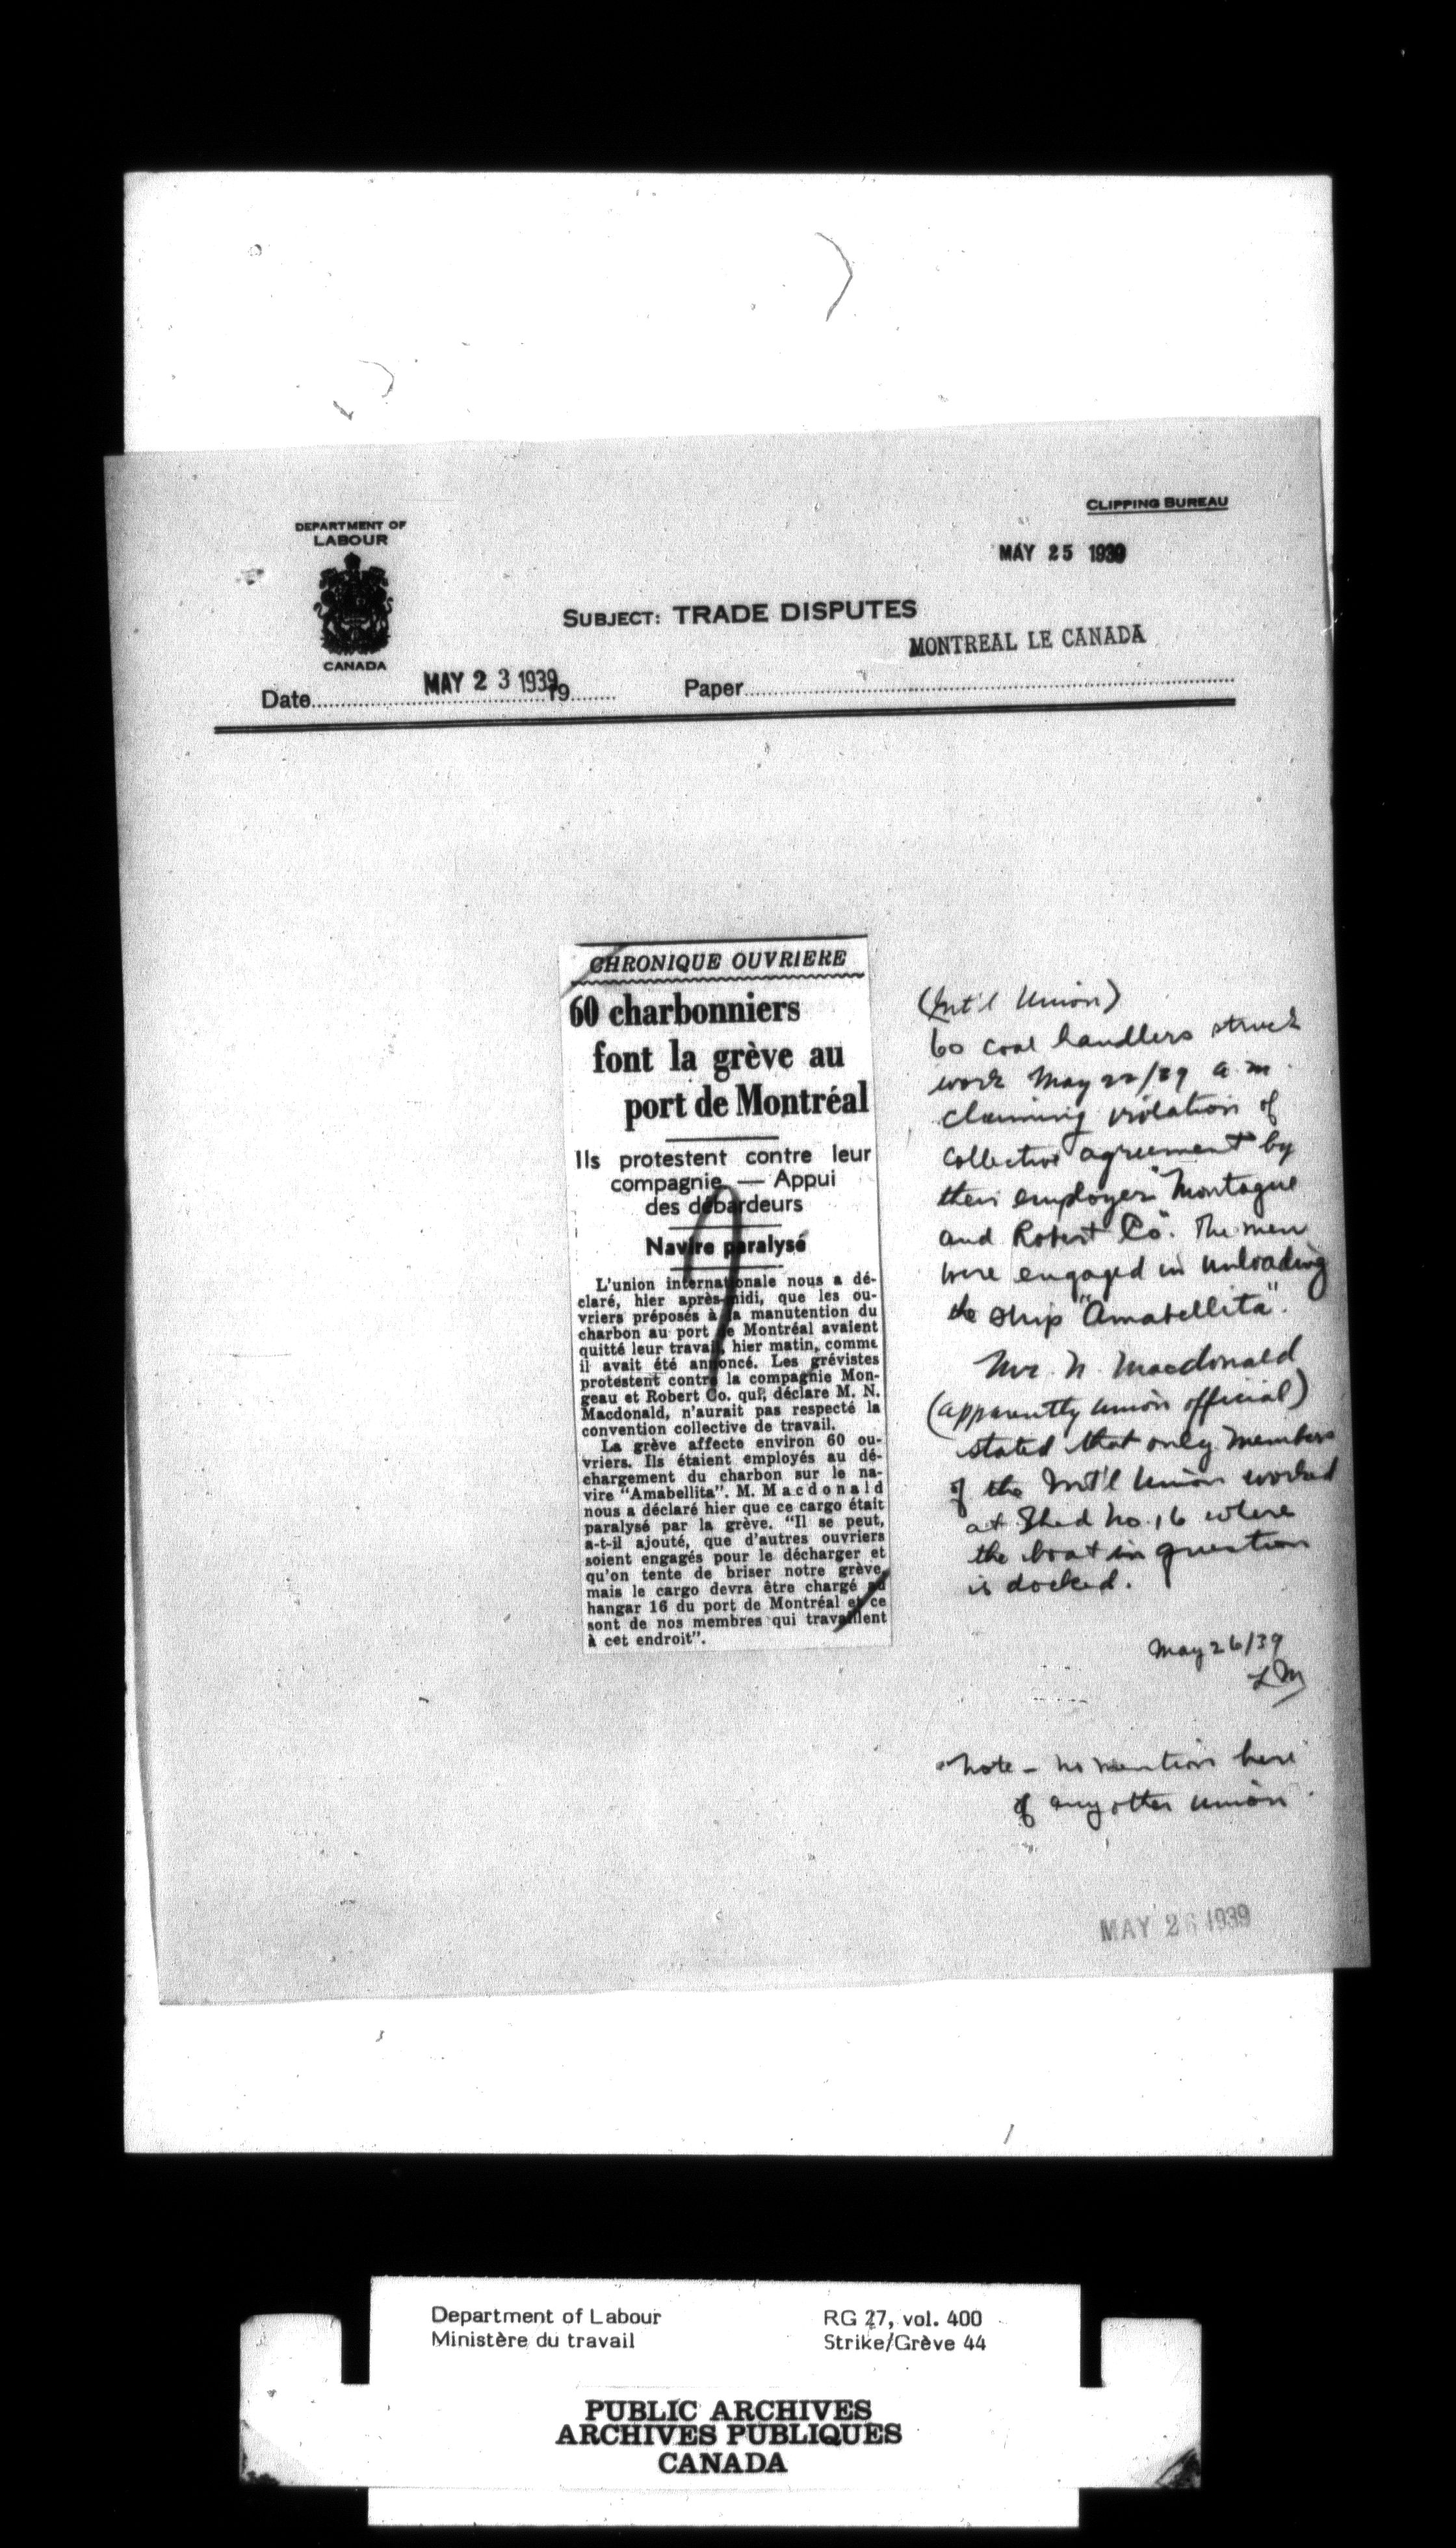 CLIPPING BUREAU
DEPARTMENT OF
LABOUR
MAY 25 1939
SUBJECT: TRADE DISPUTES
MONTREAL LE CANADA
CANADA
Date MAY 23 1939 19 Paper
CHRONIQUE OUVRIERE
60 charbonniers
font la grève au
port de Montréal
Ils protestent contre leur
compagnie — Appui
des débardeurs
Navire paralysé
L'union internationale nous a dé-
claré, hier après-midi, que les ou-
vriers préposés à la manutention du
charbon au port de Montréal avaient
quitté leur travail, hier matin, comme
il avait été annoncé. Les grévistes
protestent contre la compagnie Mon-
geau et Robert Co. qui, déclare M. N.
Macdonald, n'aurait pas respecté la
convention collective de travail.
La grève affecte environ 60 ou-
vriers. Ils étaient employés au dé-
chargement du charbon sur le na-
vire "Amabellita". M. Macdonald
nous a déclaré hier que ce cargo était
paralysé par la grève. "Il se peut,
a-t-il ajouté, que d'autres ouvriers
soient engagés pour le décharger et
qu'on tente de briser notre grève,
mais le cargo devra être chargé au
hangar 16 du port de Montréal et ce
sont de nos membres qui travaillent
à cet endroit".
(Int'l Union)
60 coal handlers struck
work May 22/39 a.m.
claiming violation of
collective agreement by
their employer "Montague
and Robert Co". The men
were engaged in unloading
the ship "Amabellita".
Mr. N. Macdonald
(apparently union official)
stated that only members
of the Int'l Union worked
at Shed No. 16 where
the boat in question
is docked.
May 26/39
LM
Note - no mention here
of any other union
MAY 26 1939
Department of Labour RG 27, vol. 400
Ministère du travail Strike/Grève 44
PUBLIC ARCHIVES
ARCHIVES PUBLIQUES
CANADA